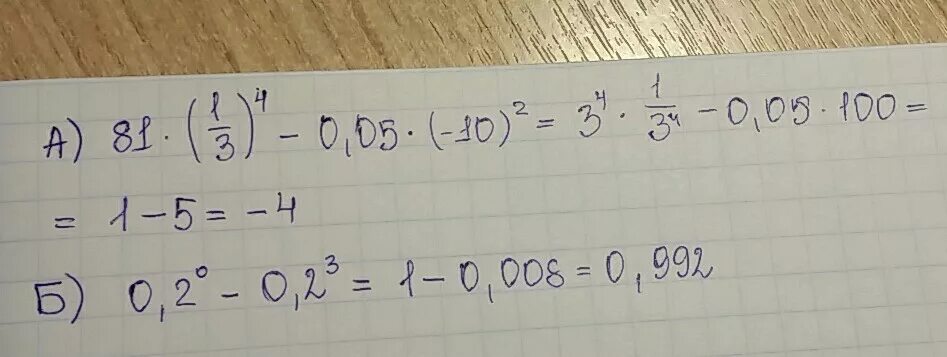 А) 81 · (1/3)⁴ − 0,05 · (−10)² = 3⁴ · 1/3⁴ − 0,05 · 100 =
= 1 − 5 = −4
Б) 0,2⁰ − 0,2³ = 1 − 0,008 = 0,992